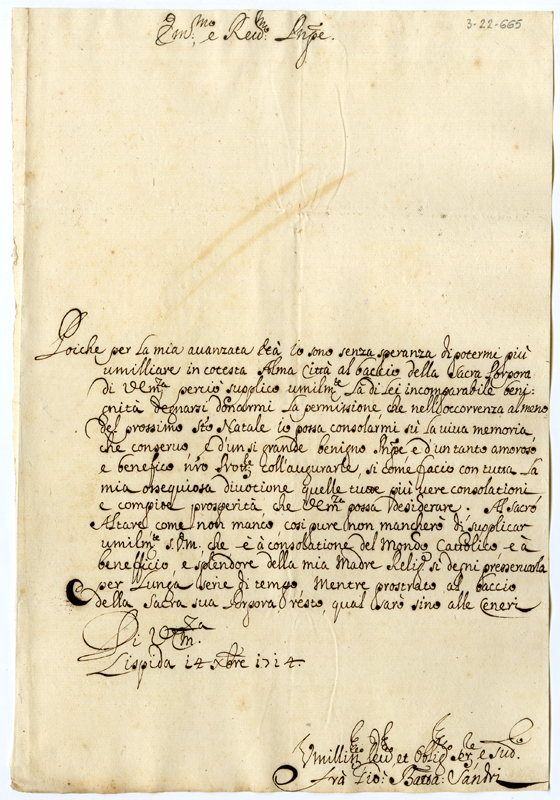 3-22-665
Em:mo e Rev:mo Pnpe.
Poiche per la mia auanzata Età Io sono senza speranza di potermi più
umilliare in cotesta Alma Città al baccio della Sacra Porpora
di VEm:za perciò supplico umilm:te la di lei incomparabile beni:
gnità degnarsi donarmi la permissione che nell'occorrenza almeno
del prossimo Sto Natale Io possa consolarmi su la viva memoria
che conseruo, è d'un si grande benigno Pnpe è d'un tanto amoroso
e benefico nro coll'augurarle, si come faccio con tutta la
mia ossequiosa diuotione quelle tutte più vere consolationi
e compite prosperità, che VEm:za possa desiderare. Al Sacro
Altare come non manco così pure non mancherò di supplicar
umilm:te S.D.M. che è à consolatione del Mondo Cattolico e à
beneficcio, e splendore della mia Madre Relig: si degni presseruarla
per Lunga serie di tempo, Mentre prostrato al baccio
della Sacra sua Porpora resto, qual sarò sino alle Ceneri
Di VEm:za
Lispida 14 Xbre 1714.
Umillis: et Oblig: e Sud.
frà Gio: Batta: Sandri